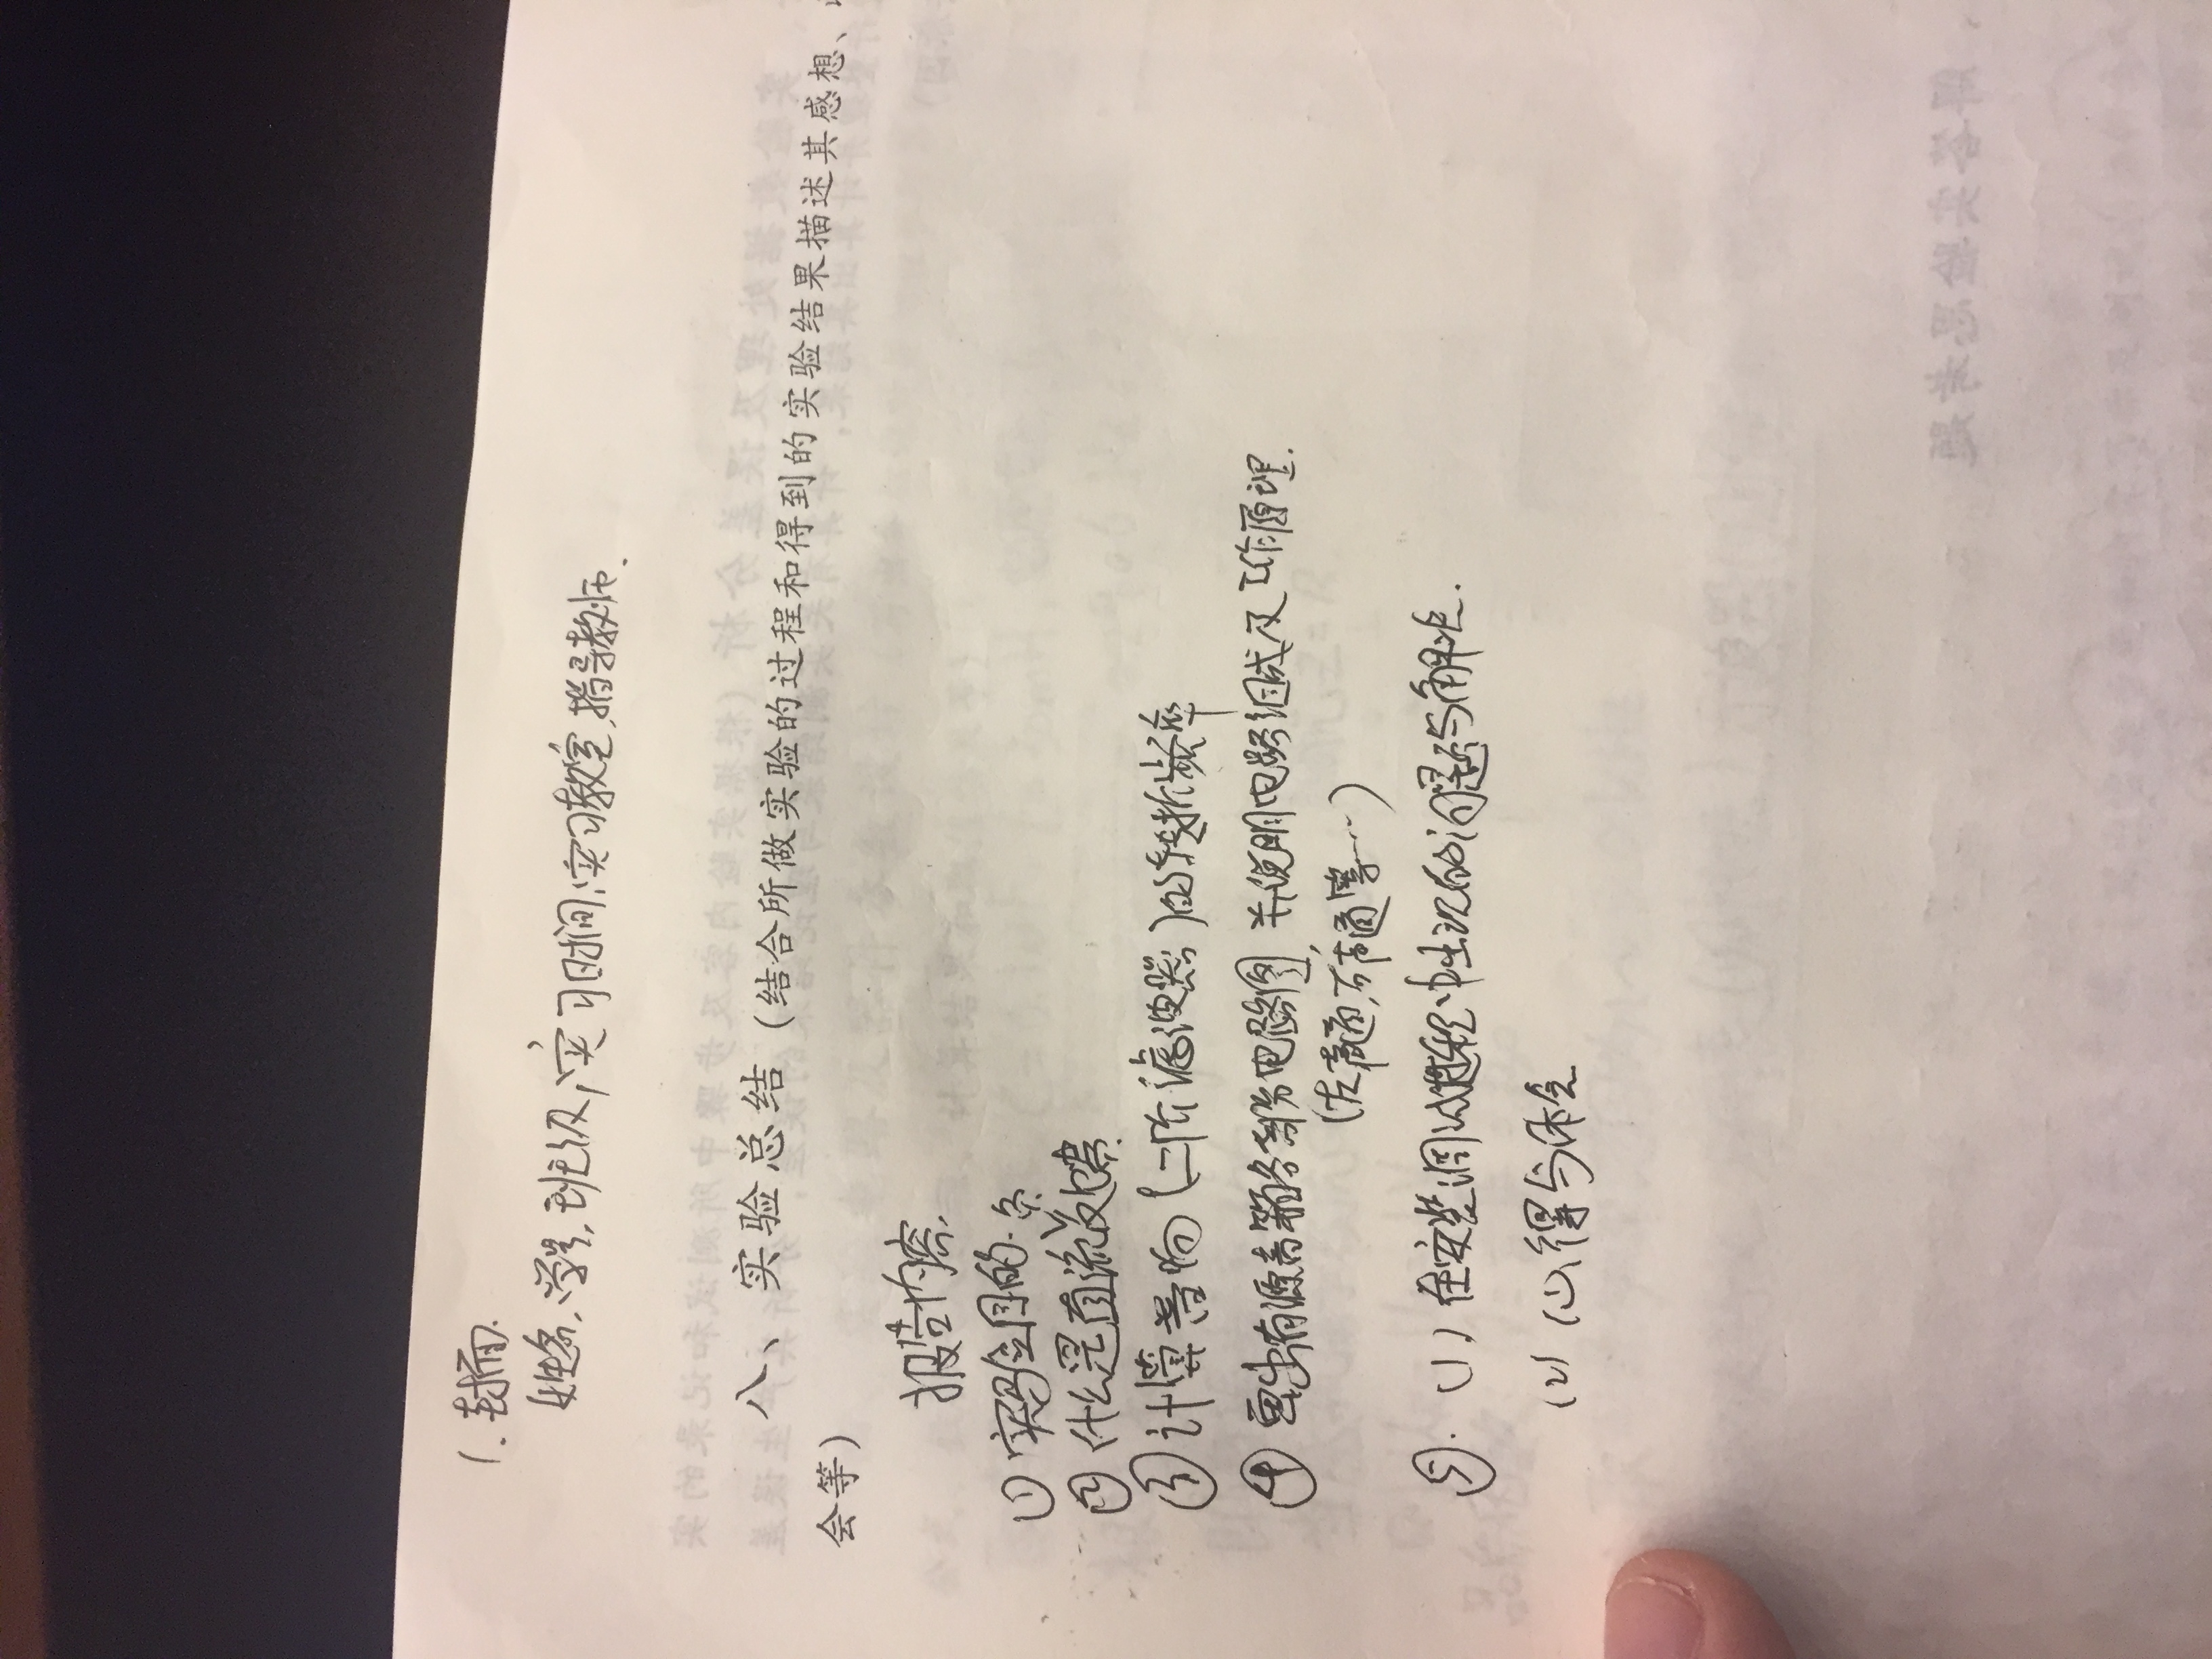 1. 封面.
姓名, 学号, 班级, 实习时间, 实习教室, 指导教师.
八、实验总结（结合所做实验的过程和得到的实验结果描述其感想、
会等）
报告内容.
① 实验目的.
② 什么是直流负反馈
③ 计算音响(二阶滤波器)的转折频率
④ 画出有源音箱各部分电路图, 并说明电路组成及工作原理.
(左声道, 右声道等……)
⑤. (1) 在安装调试过程中出现的问题与解决.
(2) 心得与体会
解答实验思考题